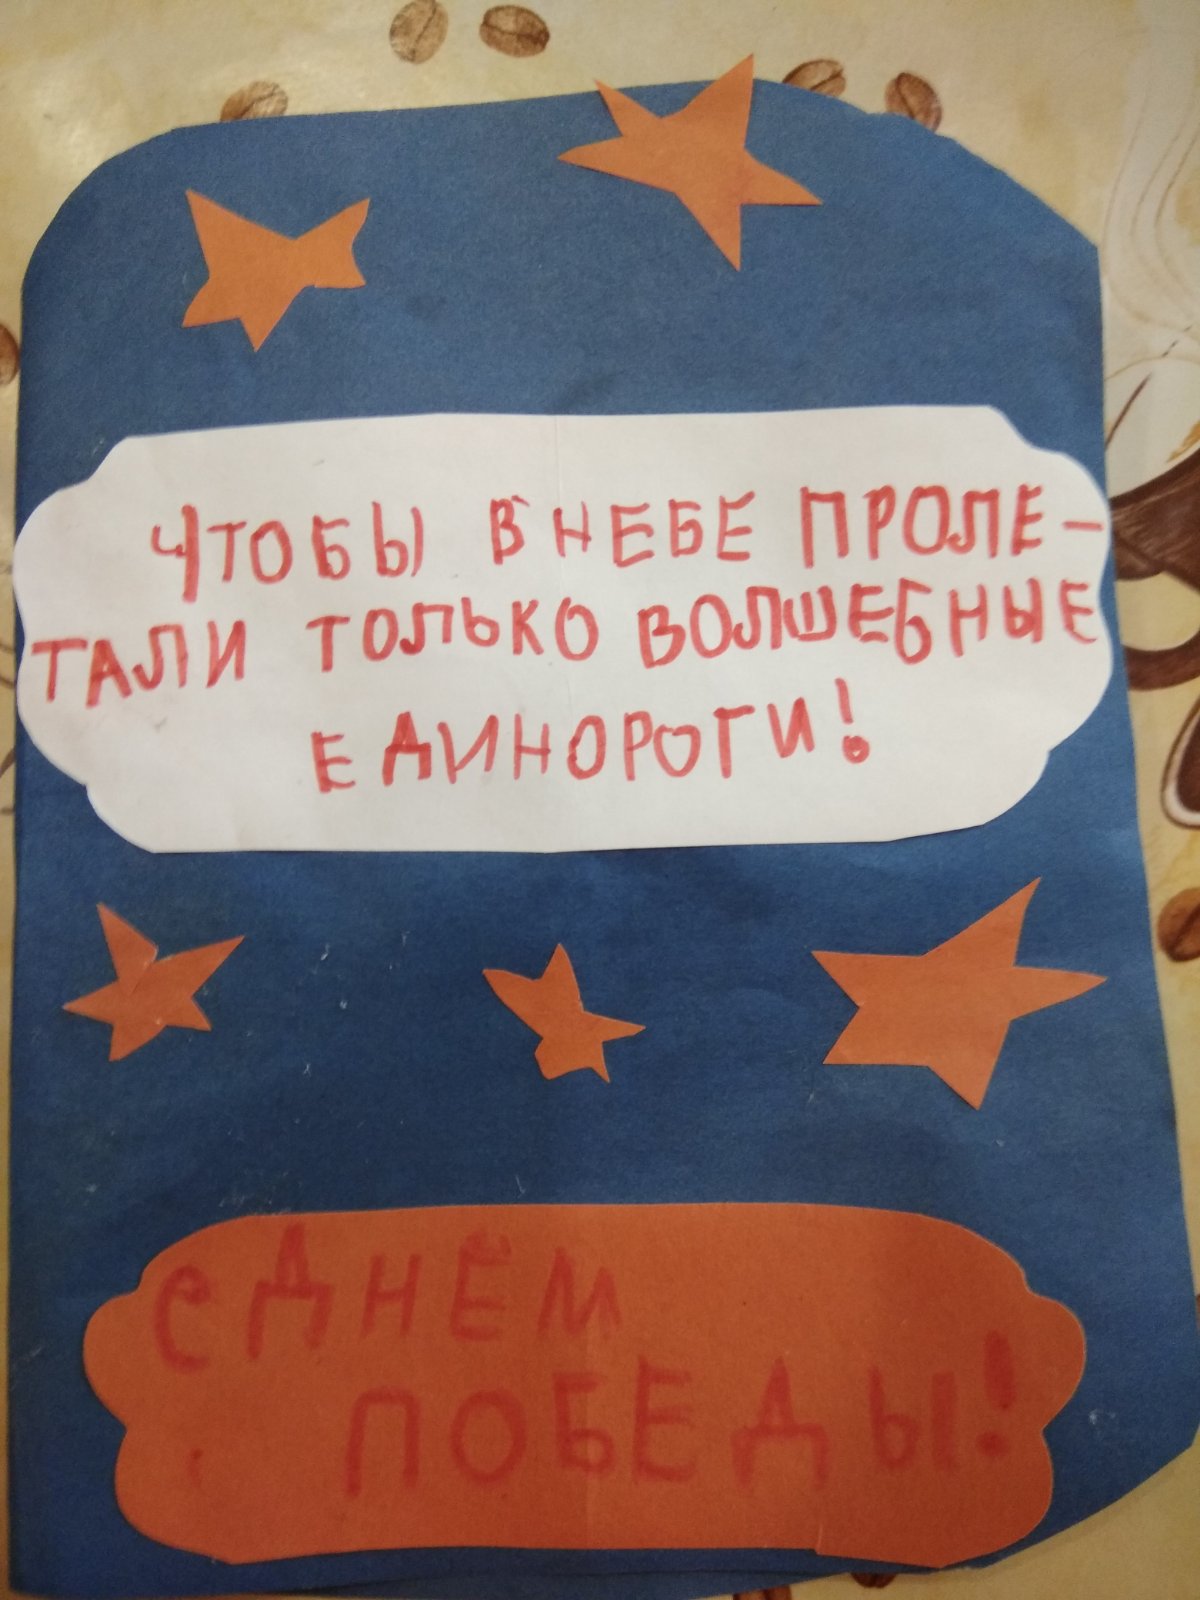 ЧТОБЫ В НЕБЕ ПРОЛЕ-
ТАЛИ ТОЛЬКО ВОЛШЕБНЫЕ
ЕДИНОРОГИ!
С ДНЁМ
ПОБЕДЫ!